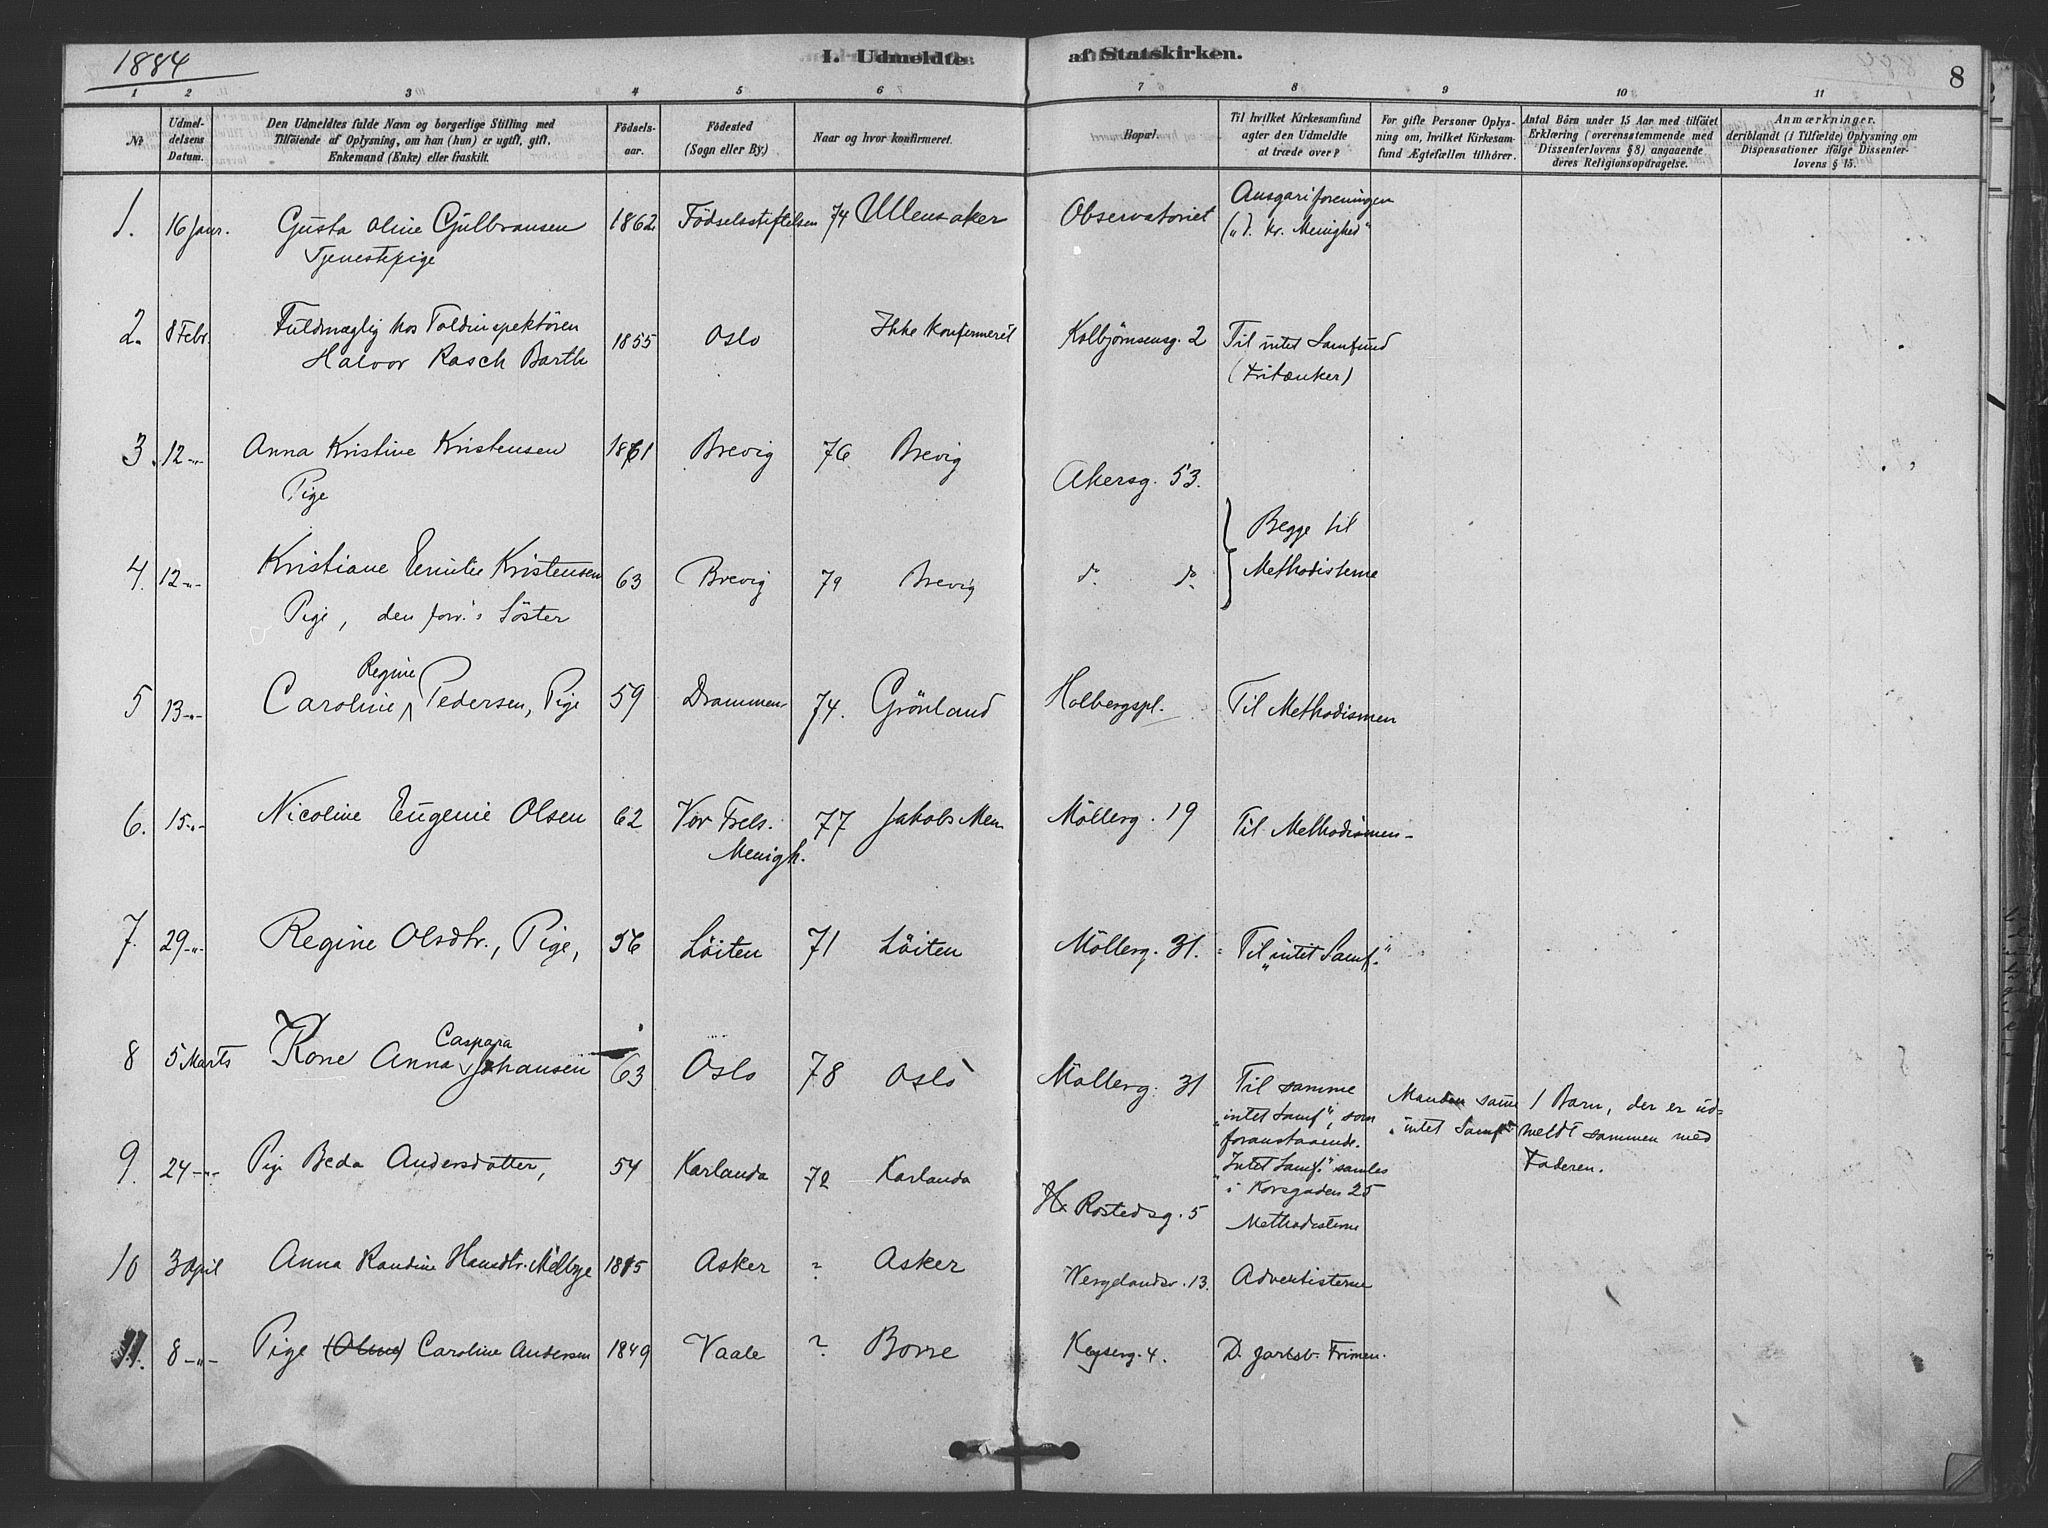 1884
I. Udmeldte af Statskirken.
8
1 2 3 4 5 6 7 8 9 10 11
№
Udmeldelsens Datum.
Den Udmeldtes fulde Navn og borgerlige Stilling med
Tilføiende af Oplysning, om han (hun) er ugift, gift,
Enkemand (Enke) eller fraskilt.
Fødselsaar.
Fødested
(Sogn eller By.)
Naar og hvor konfirmeret.
Bopæl.
Til hvilket Kirkesamfund
agter den Udmeldte
at træde over?
For gifte Personer Oplysning om, hvilket Kirkesamfund Ægtefællen tilhører.
Antal Børn under 15 Aar med tilføiet
Erklæring (overensstemmende med
Dissenterlovens § 8) angaaende
deres Religionsopdragelse.
Anmærkninger.
deriblandt (i Tilfælde) Oplysning om
Dispensationer ifølge Dissenterlovens § 15.
1. 16 Janr. Gusta Oline Gulbransen 1862 Födselsstiftelsen 74 Ullensaker Observatoriet Ansgariforeningen
Tjenestepige („d. kr. Menighed“
2. 8 Febr. Fuldmægtig hos Toldinspektören 1855 Oslo Ikke konfirmeret Kolbjörnsensg. 2 Til intet Samfund
Halvor Rasch Barth (Fritænker)
3. 12-"- Anna Kristine Kristensen 1861 Brevig 76 Brevig Akersg. 53.
Pige
4. 12-"- Kristiane Emilie Kristensen 63 Brevig 79 Brevig do. do. Begge til
Pige, den forr.s Söster Methodisterne
5 13-"- Caroline Regine Pedersen, Pige 59 Drammen 74. Grönland Holbergspl. Til Methodismen
6. 15-"- Nicoline Eugenie Olsen 62 Vor Frels. 77 Jakobs Men Möllerg. 19 Til Methodismen-
Menigh.
7. 29-"- Regine Olsdtr., Pige, 56 Löiten 71 Löiten Möllerg. 31. Til „intet Samf.“
8 5 Marts Kone Anna Caspara Johansen 63 Oslo 78 Oslo Möllerg. 31 Til samme
„intet Samf“, som
foranstaaende.
Manden samme
„intet Samf“
1 Barn, der er ud=
meldt sammen med
Faderen.
„Intet Samf.“ samles
i Korsgaden 25
9. 24-"- Pige Beda Andersdatter, 54 Karlanda 72 Karlanda Rostedsg. 5 Methodisterne
10 3 April Anna Randine Hansdtr. Melbye 1815 Asker ? Asker Wergelandsv. 13. Adventisterne
11. 8-"- Pige (Oline) Caroline Andersen 1849 Vaale ? Borre Keyserg. 4. D. jarlsb. Frimen.